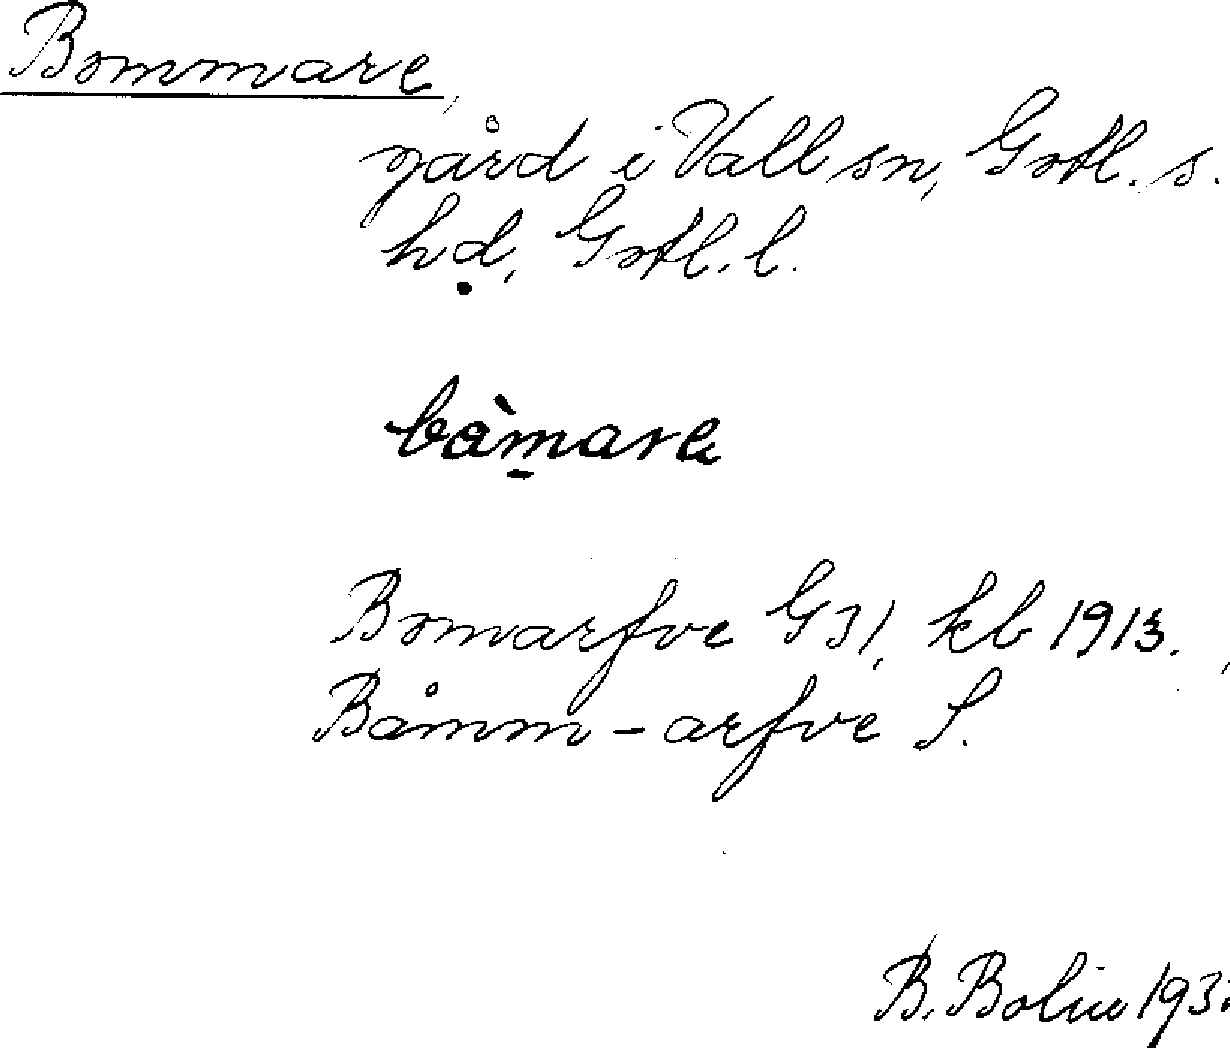 Bommare,
gård i Vall sn, Gotl. s.
hd, Gotl. l.
bàmare
Bomarfve G31, kb 1913.
Båmm-arfve S.
B. Bolin